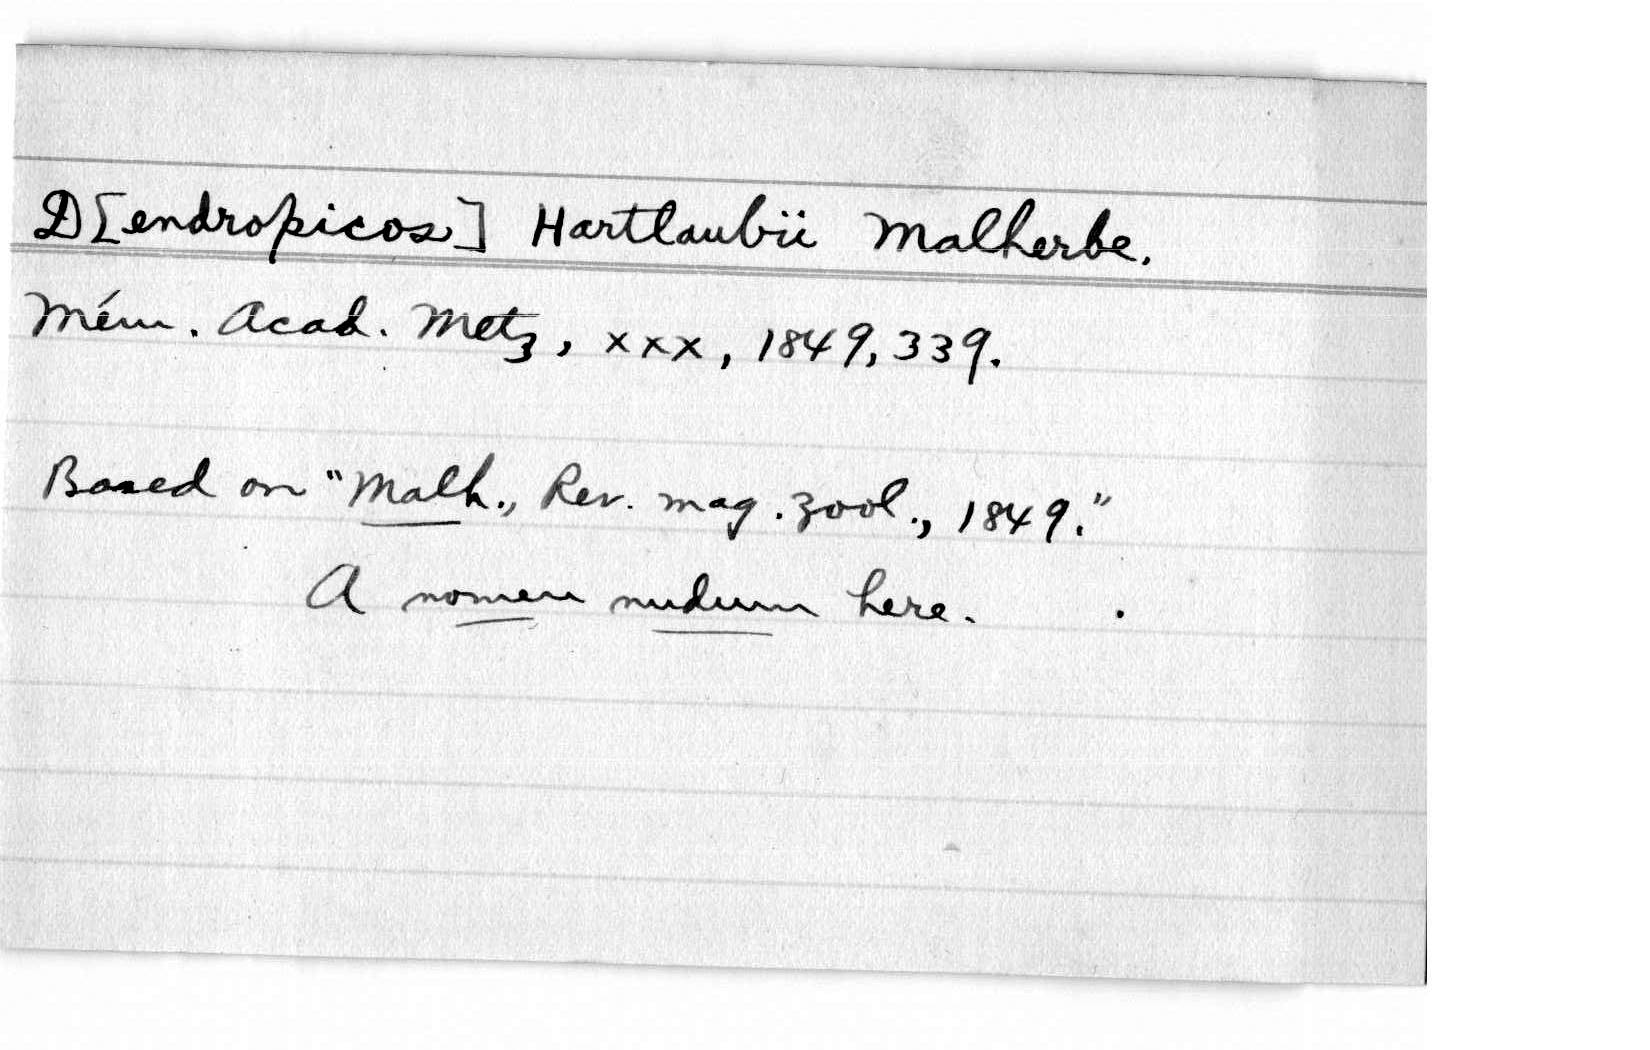 D[endropicos] Hartlaubii Malherbe.
Mém. Acad. Metz, xxx, 1849, 339.
Based on "Malh., Rev. mag. zool., 1849."
A nomen nudum here.